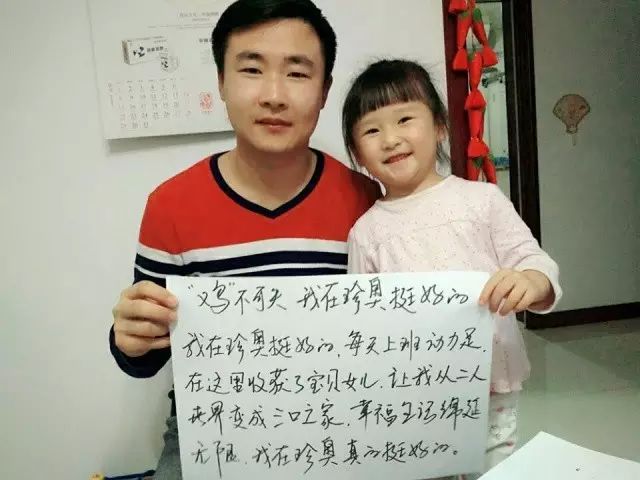 “鸡”不可失 我在珍奥挺好的
我在珍奥挺好的，每天上班动力足，
在这里收获了宝贝女儿，让我从二人
世界变成三口之家，幸福生活绵延
无限，我在珍奥真的挺好的。